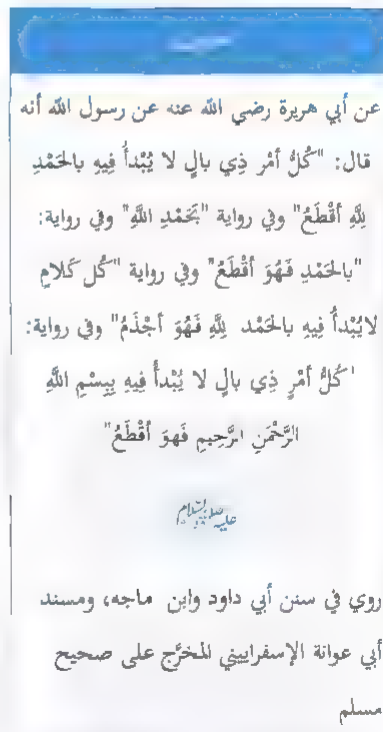 عن أبي هريرة رضي الله عنه عن رسول الله أنه
قال: "كُلُّ أَمْرٍ ذِي بالٍ لا يُبْدأُ فِيهِ بالحَمْدِ
لِلَّهِ أَقْطَعُ" وفي رواية "بَحَمْدِ اللَّهِ" وفي رواية:
"بالحَمْدِ فَهُوَ أَقْطَعُ" وفي رواية "كُل كَلامٍ
لايُبْدأُ فِيهِ بالحَمْد لِلَّهِ فَهُوَ أَجْذَمُ" وفي رواية:
'كُلُّ أَمْرٍ ذِي بالٍ لا يُبْدأُ فِيهِ بِبِسْمِ اللَّهِ
الرَّحْمَنِ الرَّحِيمِ فَهوَ أَقْطَعُ"
روي في سنن أبي داود وابن ماجه، ومسند
أبي عوانة الإسفراييني المخرَّج على صحيح
مسلم